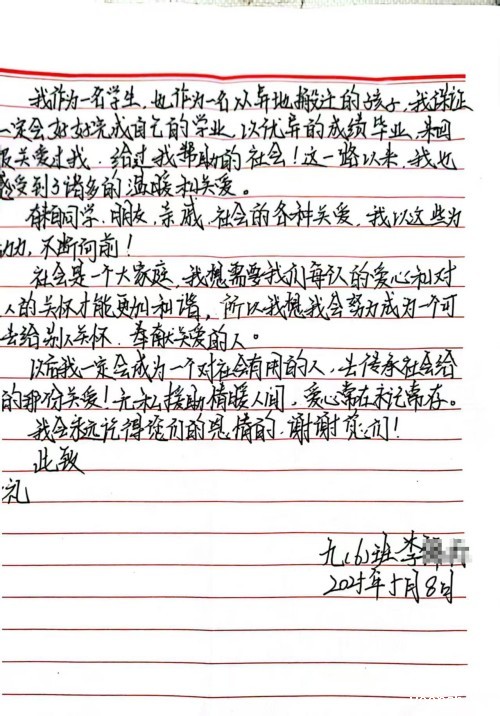 我作为一名学生,也作为一名从异地搬迁的孩子,我保证
一定会好好完成自己的学业,以优异的成绩毕业,来回
报关爱过我、给过我帮助的社会!这一路以来,我也
感受到了诸多的温暖和关爱。
有来自同学、朋友、亲戚、社会的各种关爱,我以这些为
动力,不断向前!
社会是一个大家庭,我想需要我们每认的爱心和对
人的关怀才能更加和谐,所以我想我会努力成为一个可
去给别人关怀、奉献关爱的人。
以后我一定会成为一个对社会有用的人,去传承社会给
的那份关爱!无私援助情暖人间,爱心常在永记常存。
我会永远记得您们的恩情的,谢谢您们!
此致
礼
九(6)班 李
2025年5月8日